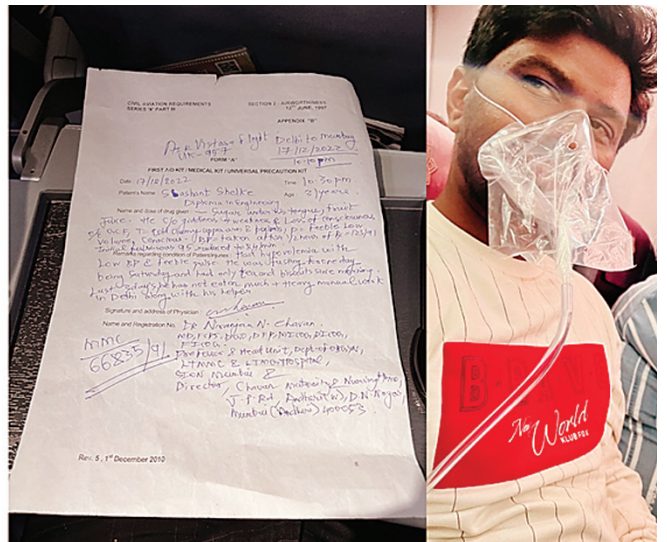 CIVIL AVIATION REQUIREMENTS
SERIES 'X' PART III
SECTION 2 - AIRWORTHINESS
12TH JUNE, 1997
APPENDIX "B"
Air Vistara flight Delhi to Mumbai
UK-957 17/12/2022
10:30pm
FORM "A"
FIRST AID KIT / MEDICAL KIT / UNIVERSAL PRECAUTION KIT
Date: 17/12/2022 Time: 10:30pm
Patient's Name: Sushant Shelke Age: 31 years
Diploma in Engineering
Name and dose of drug given - Sugar under his tongue, fruit
Juice. He C/o giddiness & weakness & Loss of consciousness
feeble Low
Volume, Conscious
Remarks regarding condition of Patient/injuries: hypovolemia with
Low BP & feeble pulse. He was fasting
being Saturday and had only tea and biscuits since morning.
Last 2 days he has not eaten much & Heavy manual work
in Delhi along with his helper
Signature and address of Physician
Name and Registration No. Dr Niranjan N. Chavan
MD, FCPS, DGO, DFP, MICOG, DICOG,
FICOG
Professor & Head Unit, Dept. of
LTMMC & LTMGHospital,
SION Mumbai &
Director, Chavan Maternity & Nursing Home,
J.P. Rd, Andheri (W), D.N. Nagar,
Mumbai (Andheri) 400053.
MMC
66835/91
Rev. 5, 1st December 2010
B·RAV
New World
KLUB FOX